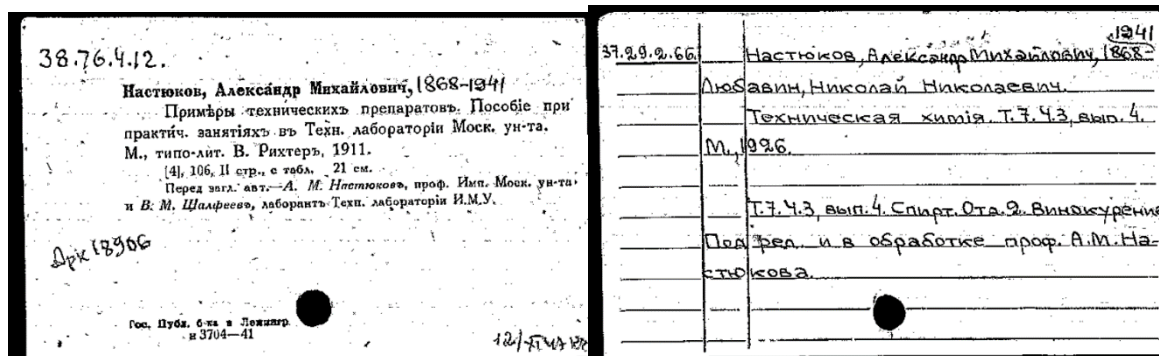 38.76.4.12.
Настюков, Алекса́ндр Михайлович, 1868-1941
Примѣры техническихъ препаратовъ. Пособіе при
практич. занятіяхъ въ Техн. лабораторіи Моск. ун-та.
М., типо-лит. В. Рихтеръ, 1911.
[4], 106, II стр., с табл. 21 см.
Перед загл. авт.—А. М. Настюковъ, проф. Имп. Моск. ун-та
и В. М. Шалфеевъ, лаборантъ Техн. лабораторіи И.М.У.
Арк 18906
Гос. Публ. б-ка в Ленингр.
и 3704—41
37.29.2.66.
Настюков, Александр Михайлович, 1868-
1941
Любавин, Николай Николаевич.
Техническая химія. Т.7. Ч.3, вып. 4.
М., 1926.
Т.7. Ч.3, вып. 4. Спирт. Отд. 2. Винокурение
Под ред. и в обработке проф. А.М. На-
стюкова.